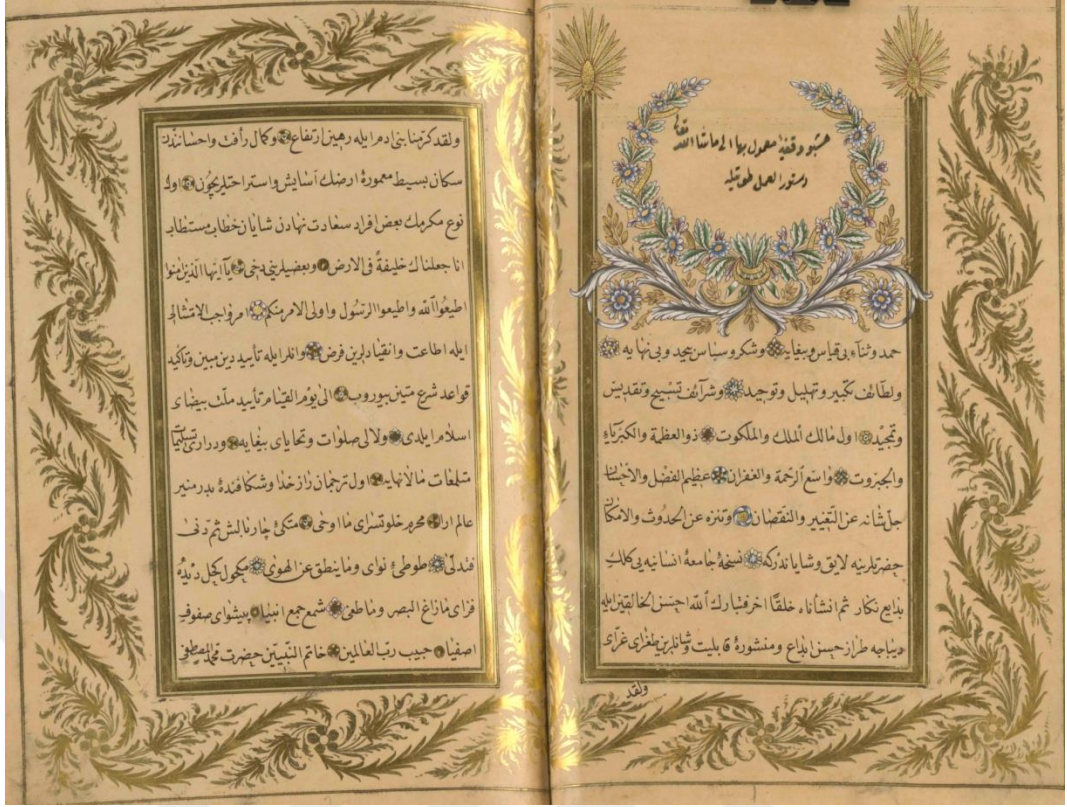 اشبو وقفیه معمول بها الی ماشاء الله تعالی
دستور العمل طوتیله
حمد وثناء بی قیاس وبیغایه وشکر وسپاس بیحد وبی نهایه
ولطائف تکبیر وتهلیل وتوحید وشرآئف تسبیح وتقدیس
وتمجید اول مالك الملك والملکوت ذو العظمة والکبریاء
والجبروت واسع الرحمة والغفران عظیم الفضل والاحسان
جل شانه عن التغییر والنقصان وتنزه عن الحدوث والامکان
حضرتلرینه لایق وشایاندرکه نسخۀ جامعۀ انسانیه یی کلك
بدایع نکار ثم انشأناه خلقًا اخر فتبارك الله احسن الخالقین ایله
دیباجه طراز حسن ابداع ومنشورۀ قابلیت وشانلرین طغرای غرای
ولقد
ولقد کرمنا بنی ادم ایله رهین ارتفاع وکمال رأفت واحساندن
سکان بسیط معمورۀ ارضك آسایش واستراحتلریچون اول
نوع مکرمك بعض افراد سعادت نهادن شایان خطاب مستطاب
انا جعلناك خلیفةً فی الارض وبعضیلرینی دخی یآ ایها الذین امنوا
اطیعوا الله واطیعوا الرسول واولی الامر منکم امر واجب الامتثالی
ایله اطاعت وانقیادلرین فرض وانلر ایله تأیید دین مبین وتاکید
قواعد شرع متین بیوروب الی یوم القیام تأیید ملت بیضاء
اسلام ایلدی ولالی صلوات وتحایای بیغایه ودراری تسلیمات
متلمعات مالانهایه اول ترجمان راز خدا وشکافندۀ بدر منیر
عالم ارا محرم خلوتسرای ما اوحی متکئ چاربالش ثم دنی
فتدلی طوطئ نوای وما ینطق عن الهوی مکحول کحل دیده
فزای مازاغ البصر وماطغی شمع جمع انبیا پیشوای صفوف
اصفیا حبیب رب العالمین خاتم النبیین حضرت محمد المصطفی